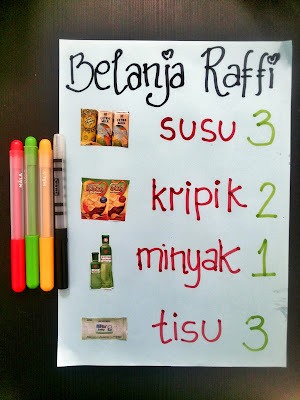 Belanja Raffi
susu 3
kripik 2
minyak 1
tisu 3